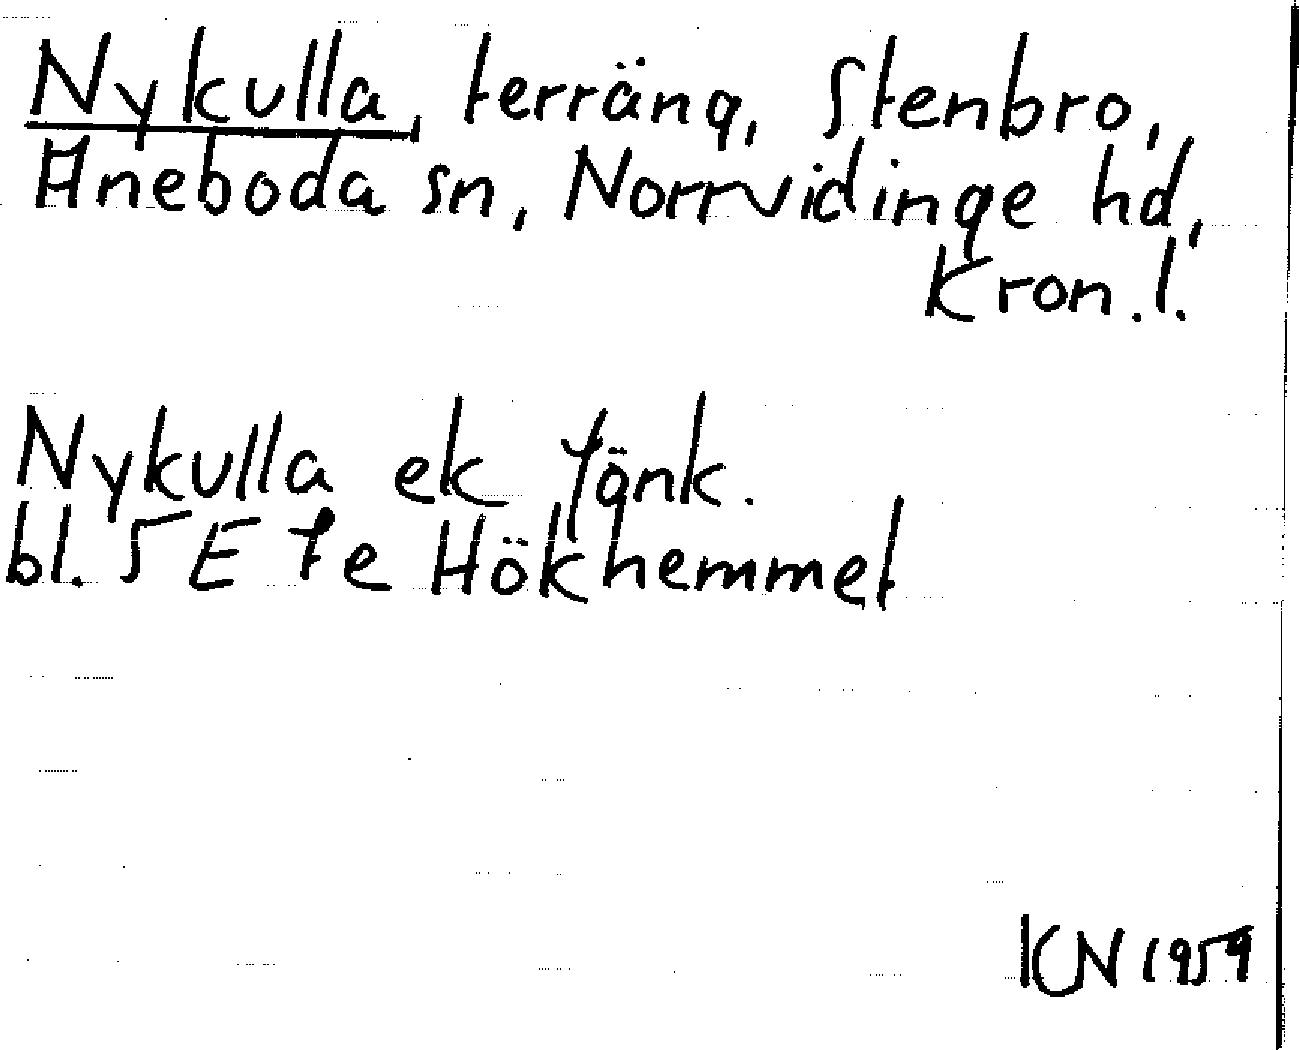 Nykulla, terräng, Stenbro,
Aneboda sn, Norrvidinge hd,
Kron.l.
Nykulla ek Jönk.
bl. 5 E fe Hökhemmet
KN 1959